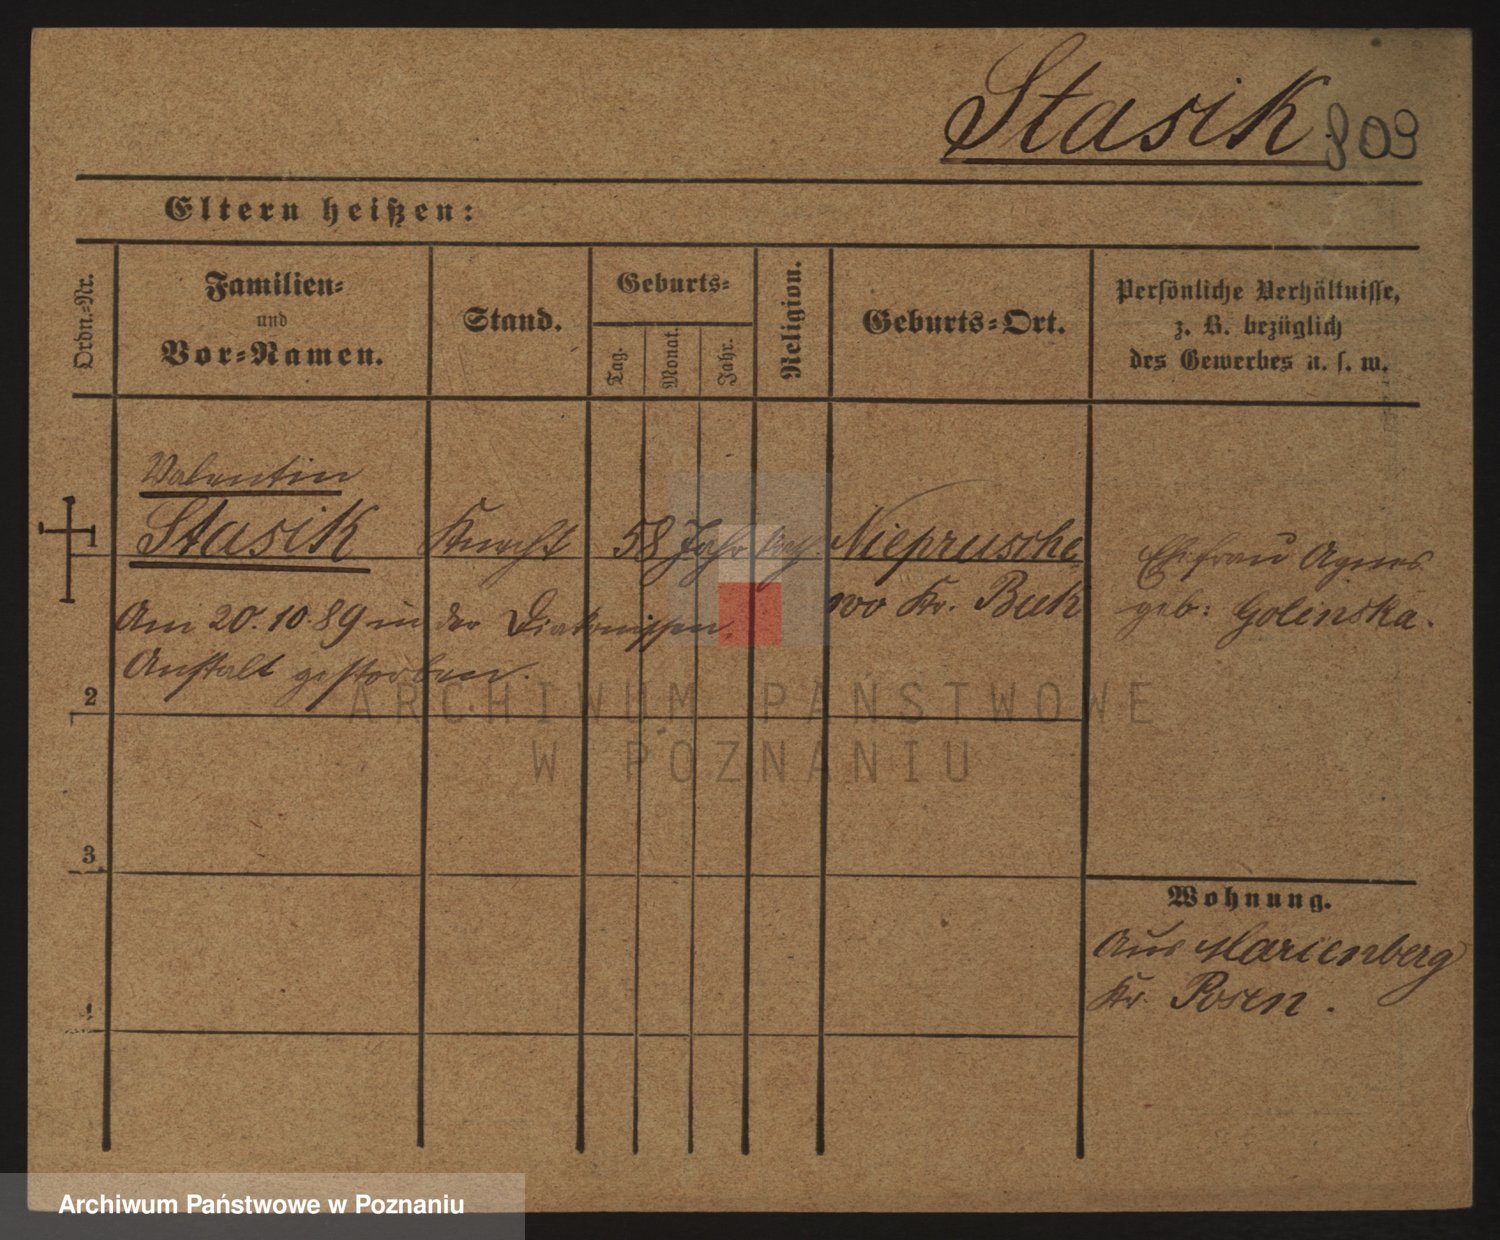 Stasik 809
Eltern heißen:
Ordn.-Nr.
Familien-
und
Vor-Namen.
Stand.
Geburts-
Tag.
Monat.
Jahr.
Religion.
Geburts-Ort.
Persönliche Verhältnisse,
z. B. bezüglich
des Gewerbes u. s. w.
Valentin
Stasik Knecht 58 Jahr kath. Nieprusche-
wo Kr. Buk
Ehefrau Agnes
geb: Golinska.
Am 20.10.89 in der Diakonissen
Anstalt gestorben.
2
3
4
Wohnung.
Aus Marienberg
Kr. Posen.
ARCHIWUM PAŃSTWOWE
W POZNANIU
Archiwum Państwowe w Poznaniu